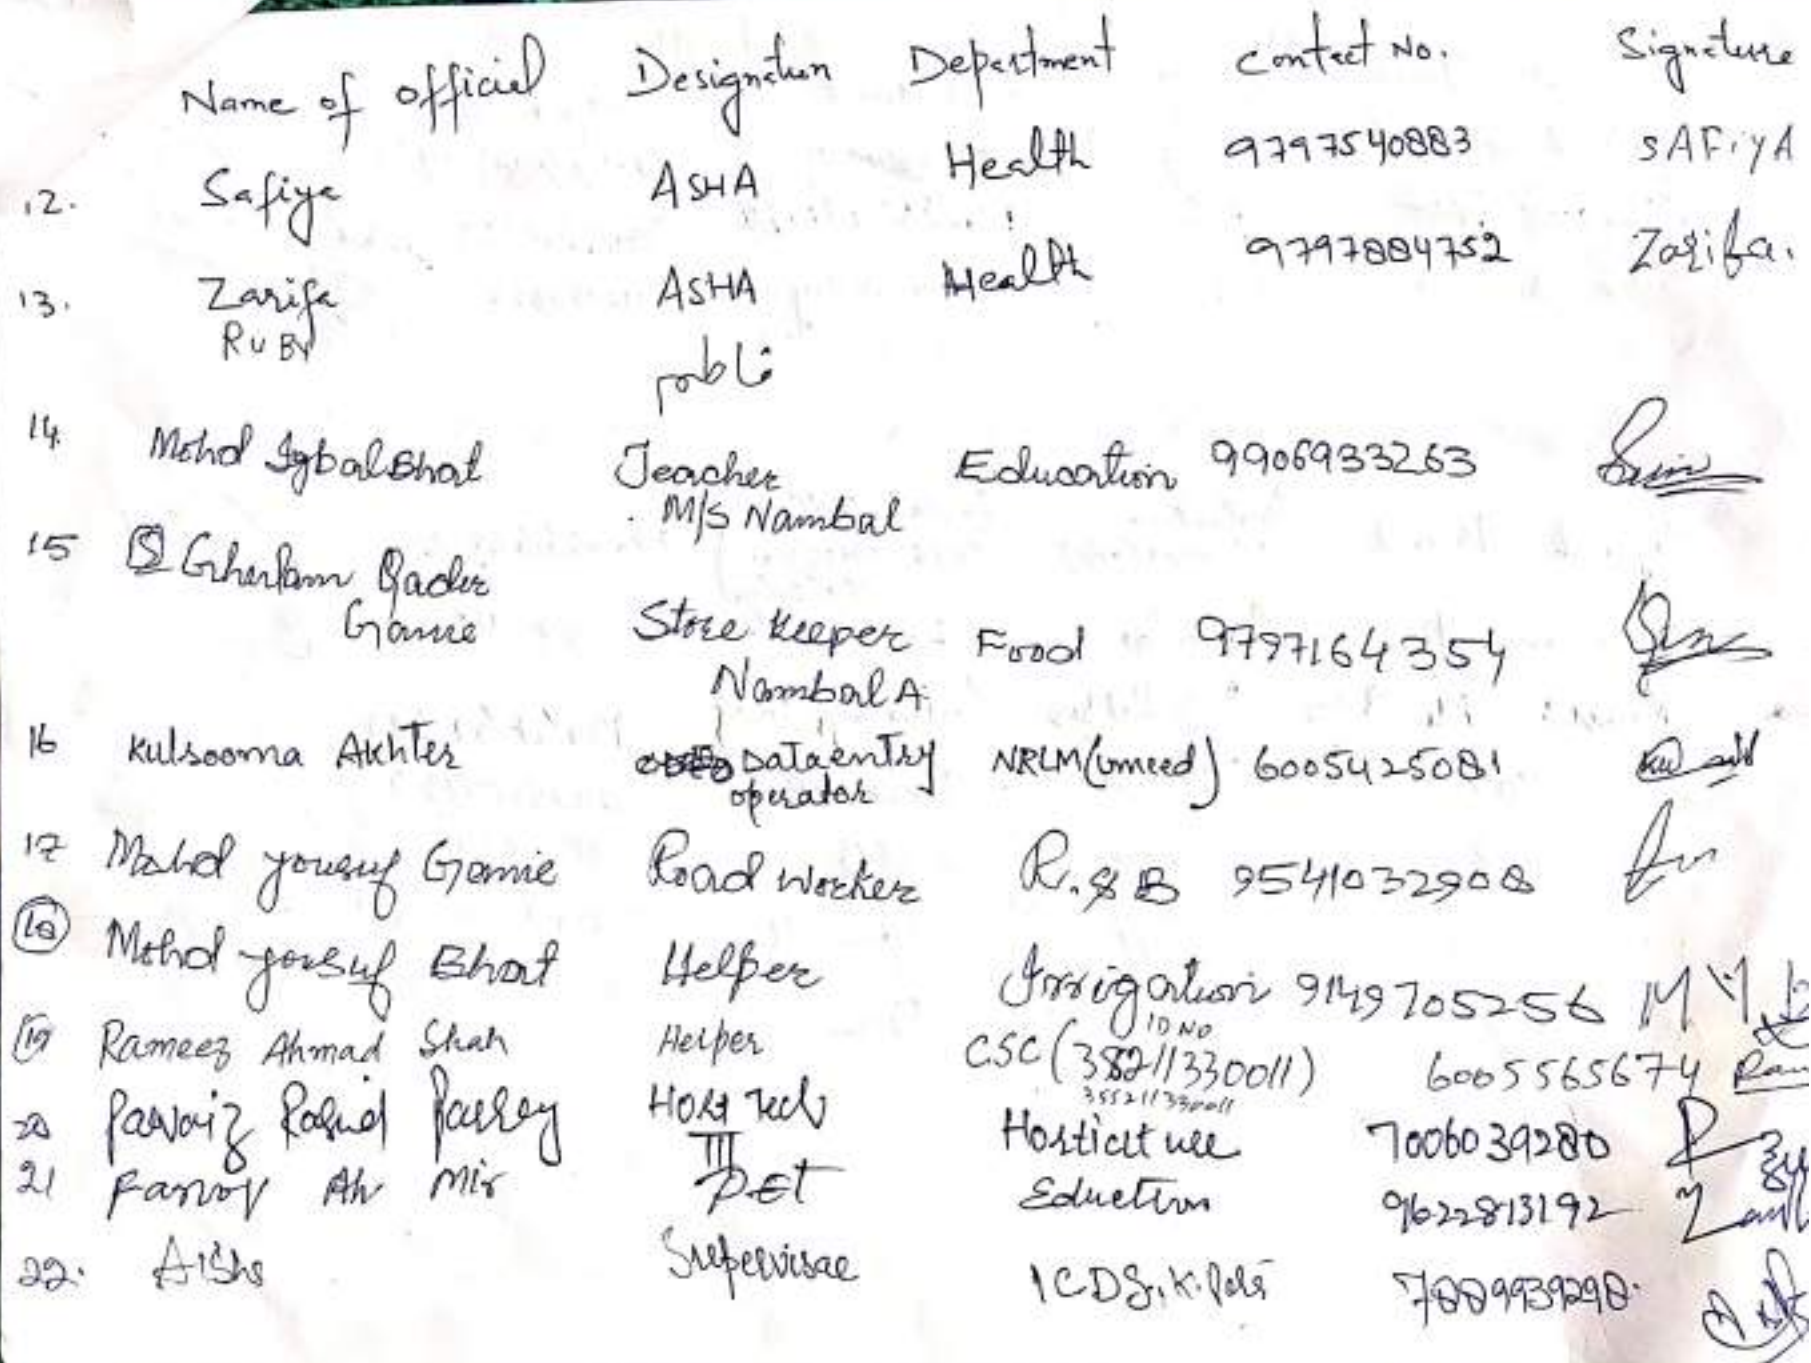 Name of official Designation Department Contact No. Signature
12. Safiya ASHA Health 9797540883 SAFiYA
13. Zarifa ASHA Health 9797884752 Zarifa.
RUBY
14. Mohd Iqbal Bhat Teacher Education 9906933263
M/S Nambal
15 Qader
Ganie Store keeper Food 9797164354
Nambal A.
16 Kulsooma Akhter Data entry NRLM (umeed) 6005425081
operator
17 Mohd yousuf Ganie Road Worker R. & B 9541032908
18 Mohd yousuf Bhat Helper Irrigation 9149705256
ID NO
19 Rameez Ahmad Shah Helper CSC (38211330011) 6005565674
355211330011
20 Parvaiz Rashid Parrey Hort Tech Horticlture 7006039280
III
21 Ah Mir PET Eduction 9622813192
22. Aisha Supervisae ICDS, K. 7889939298.